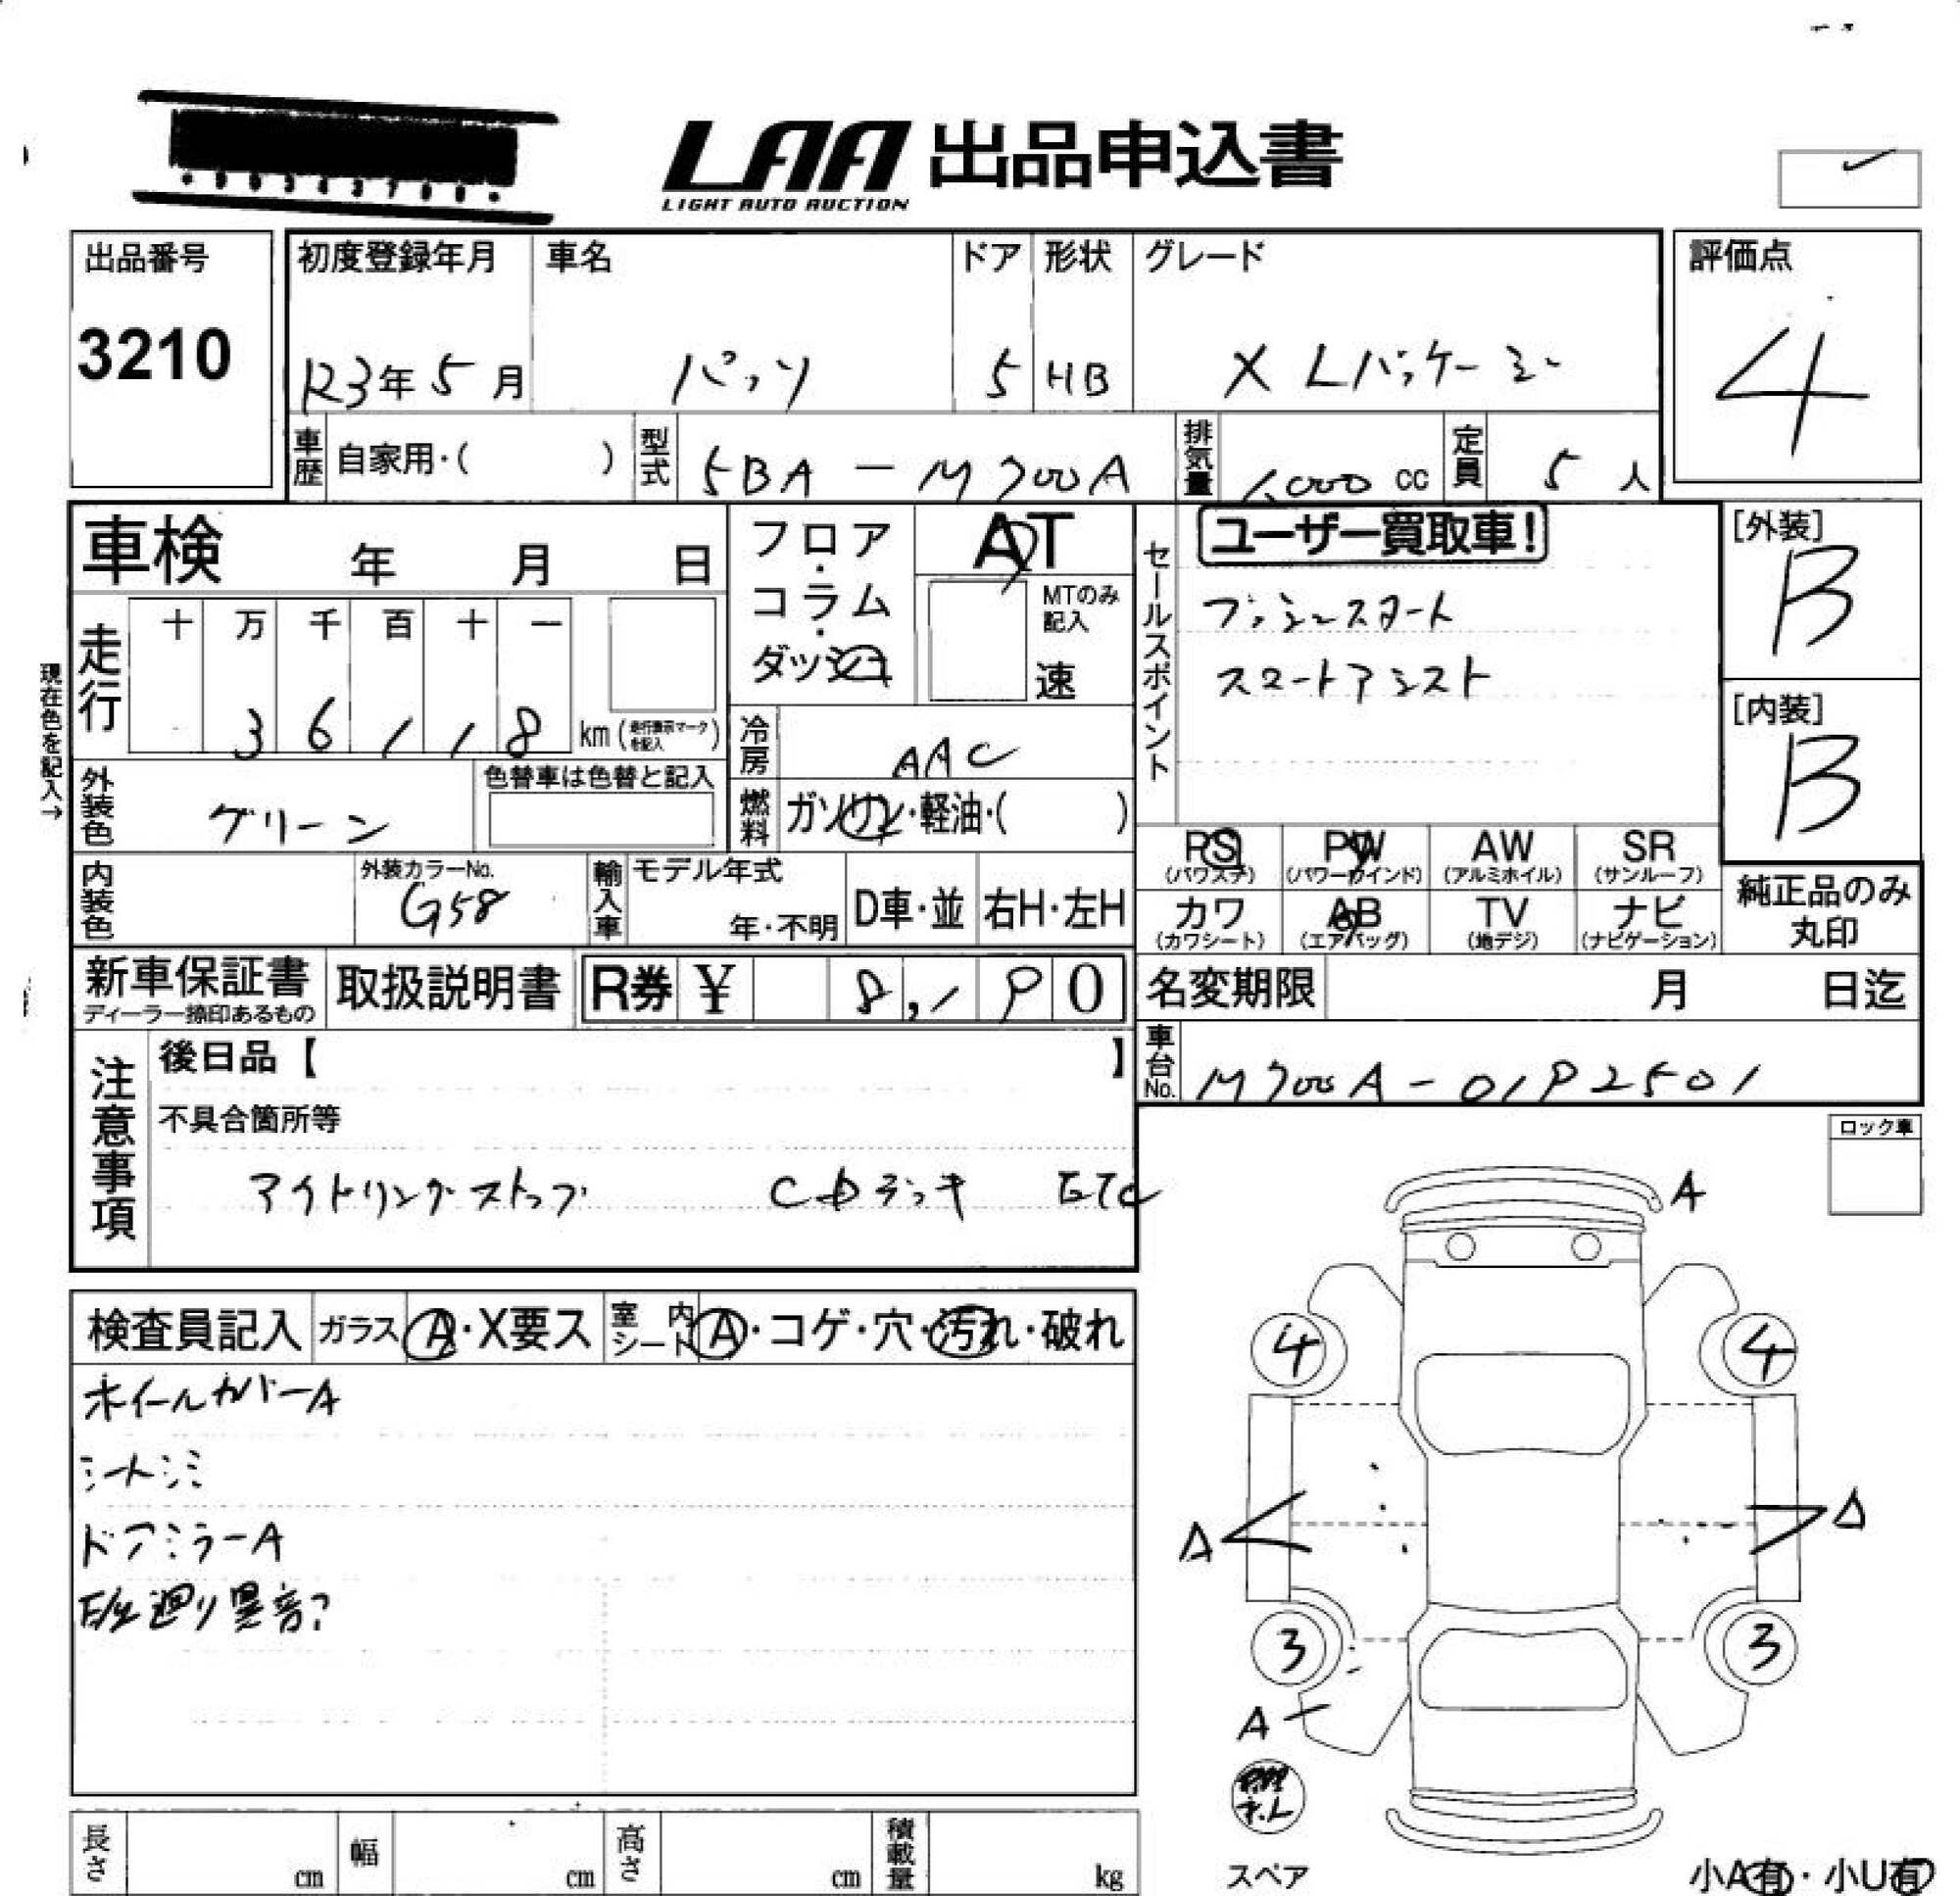 LAA 出品申込書
LIGHT AUTO AUCTION
出品番号
3210
初度登録年月 車名 ドア 形状 グレード
R3年 5月 パッソ 5 HB X Lパッケージ
評価点
4
車歴 自家用・( ) 型式 5BA-M700A 排気量 1,000 cc 定員 5 人
車検 年 月 日
フロア・コラム・ダッシュ
AT
MTのみ記入
速
セールスポイント
ユーザー買取車!
プッシュスタート
スマートアシスト
[外装]
B
[内装]
B
現在色を記入→
走行 十 万 千 百 十 一
3 6 1 1 8 km (走行表示マークを記入)
冷房 AAC
外装色 グリーン
色替車は色替と記入
燃料 ガソリン・軽油・( )
PS (パワステ) PW (パワーウインド) AW (アルミホイル) SR (サンルーフ)
カワ (カワシート) AB (エアバッグ) TV (地デジ) ナビ (ナビゲーション)
純正品のみ丸印
内装色
外装カラーNo.
G58
輸入車 モデル年式 年・不明 D車・並 右H・左H
新車保証書
ディーラー捺印あるもの
取扱説明書
R券 ¥ 8,190
名変期限 月 日迄
車台No. M700A-0192501
注意事項
後日品【 】
不具合箇所等
アイドリングストップ CDデッキ ETC
ロック車
検査員記入 ガラス A・X要ス 室内シート A・コゲ・穴・汚れ・破れ
ホイールカバーA
シートシミ
ドアミラーA
E/g廻り異音?
A
4 4
A A
3 3
A
スペア
小A有・小U有
長さ cm 幅 cm 高さ cm 積載量 kg